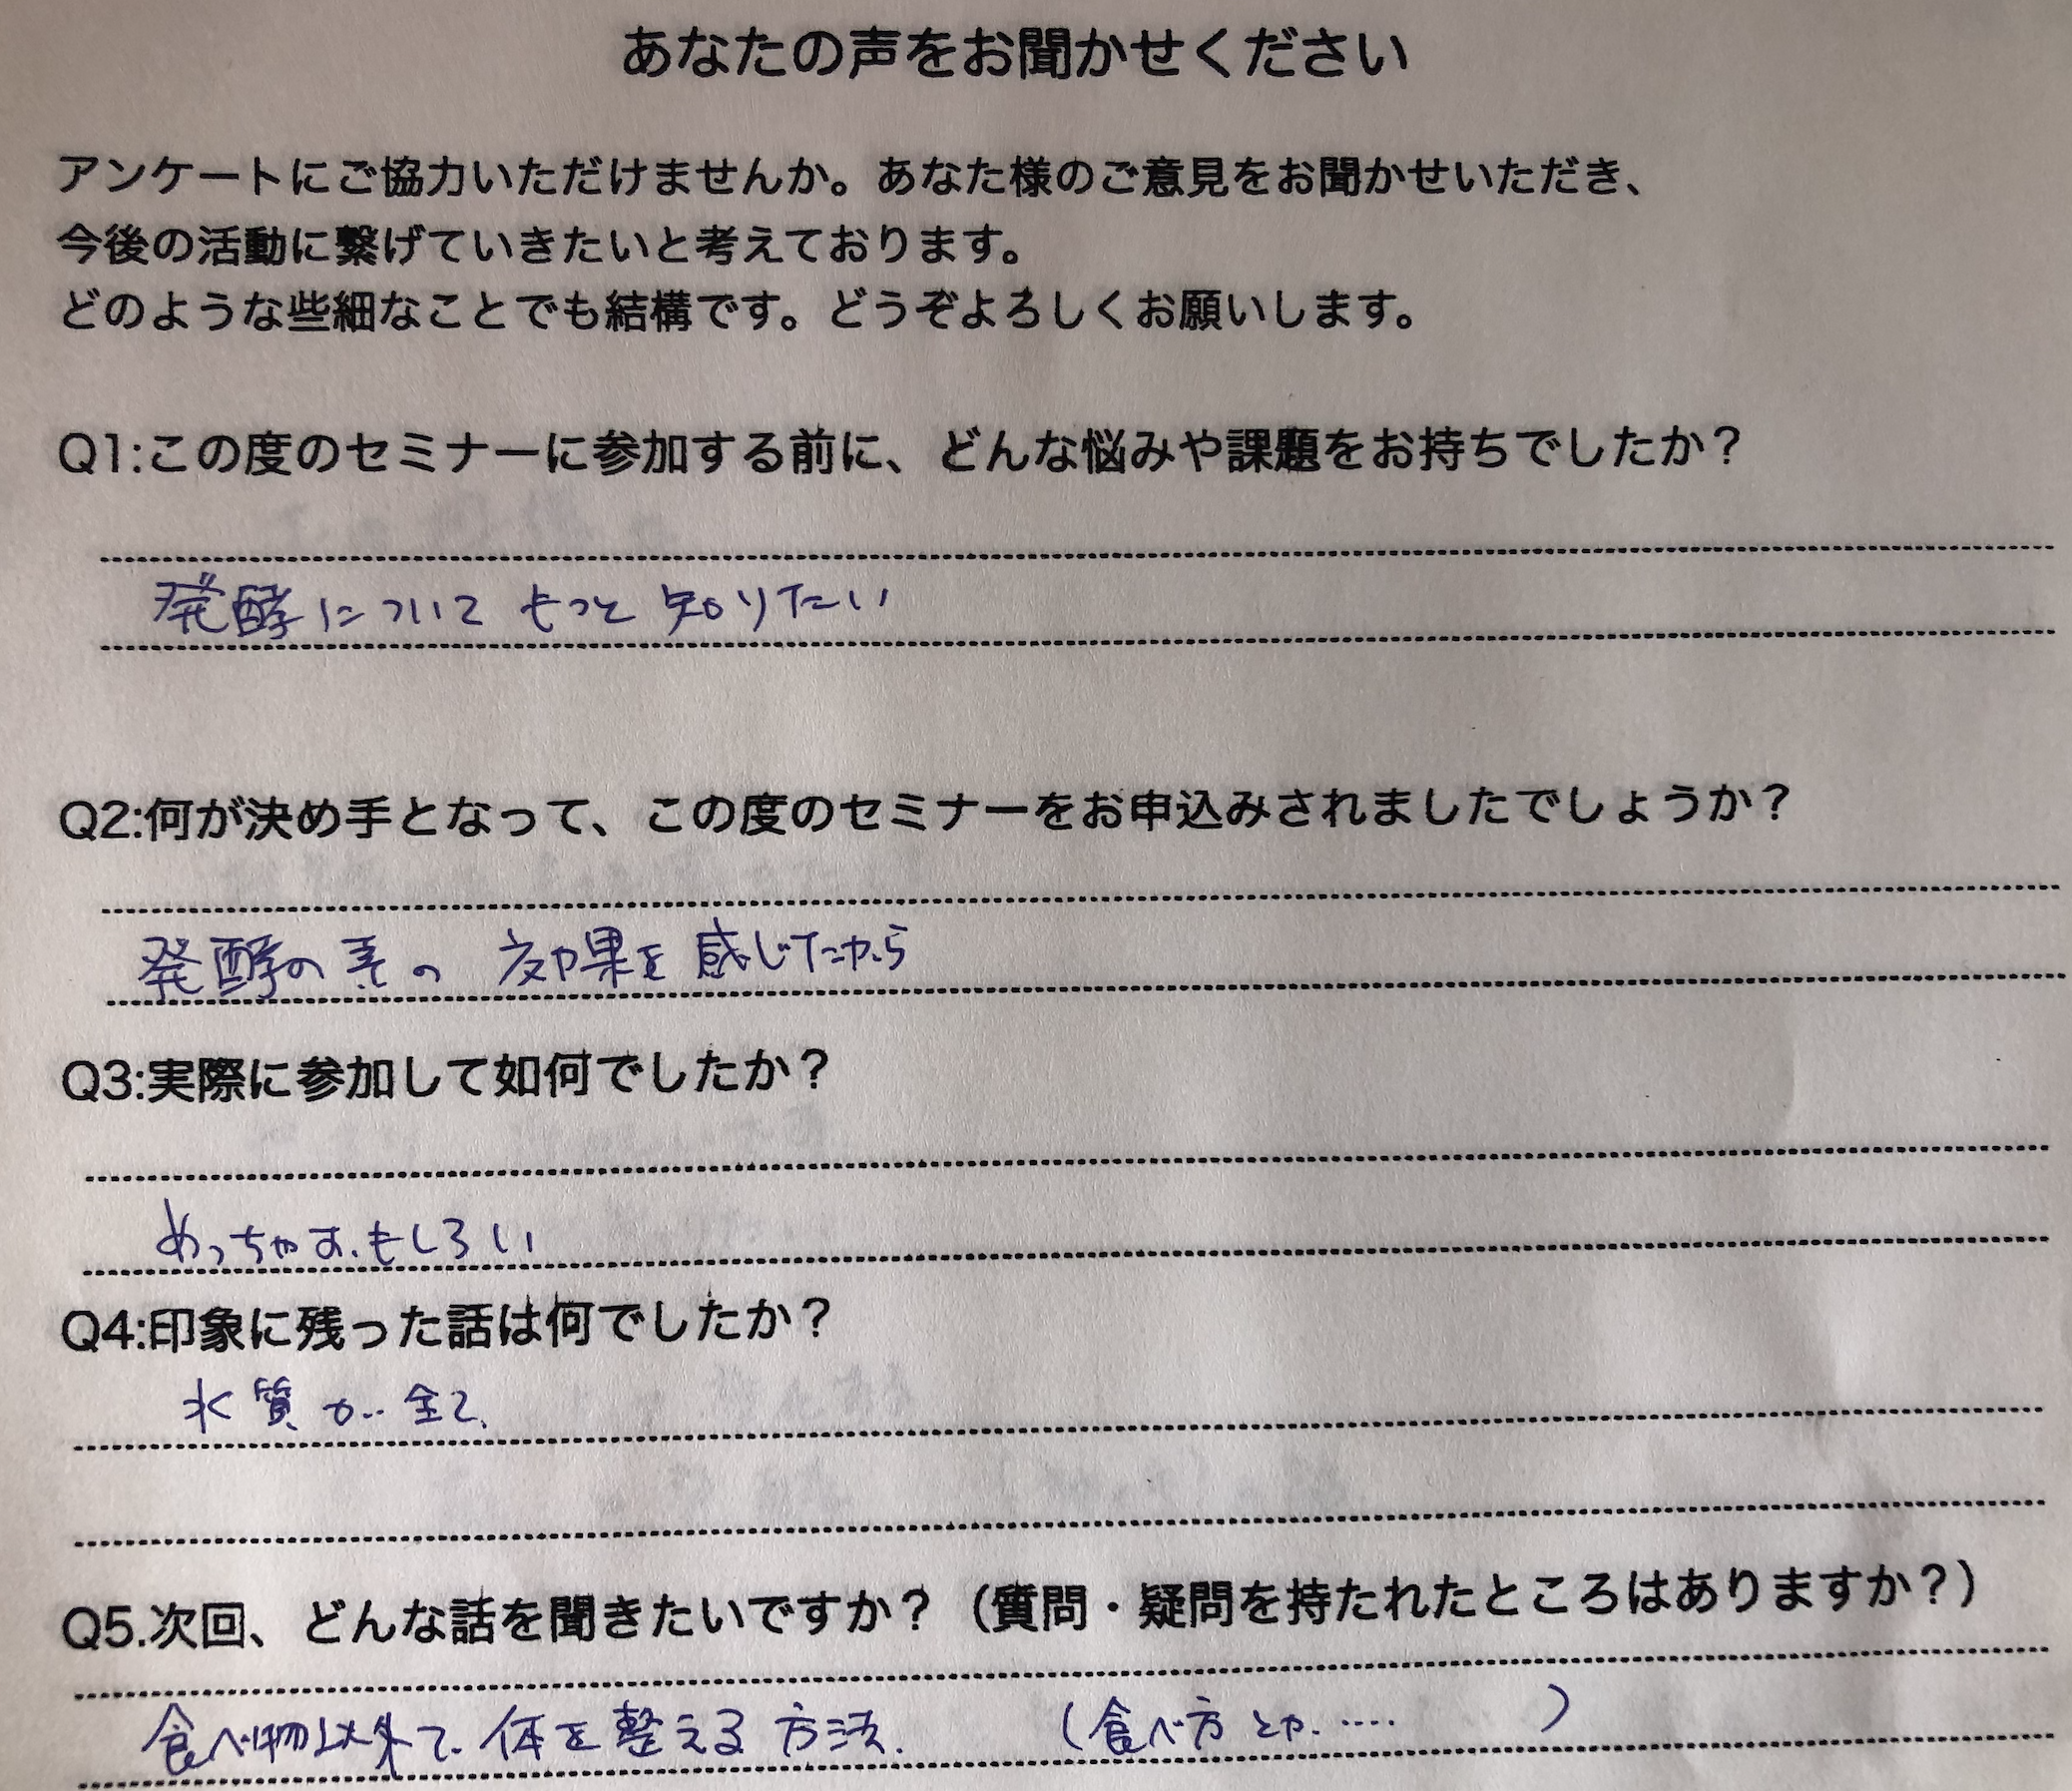 あなたの声をお聞かせください
アンケートにご協力いただけませんか。あなた様のご意見をお聞かせいただき、
今後の活動に繋げていきたいと考えております。
どのような些細なことでも結構です。どうぞよろしくお願いします。
Q1:この度のセミナーに参加する前に、どんな悩みや課題をお持ちでしたか？
発酵について もっと 知りたい
Q2:何が決め手となって、この度のセミナーをお申込みされましたでしょうか？
発酵の素の 効果を 感じたから
Q3:実際に参加して如何でしたか？
めっちゃおもしろい
Q4:印象に残った話は何でしたか？
水質が全て、
Q5.次回、どんな話を聞きたいですか？（質問・疑問を持たれたところはありますか？）
食べ物以外で 体を整える方法. （食べ方とか.‥‥ ）